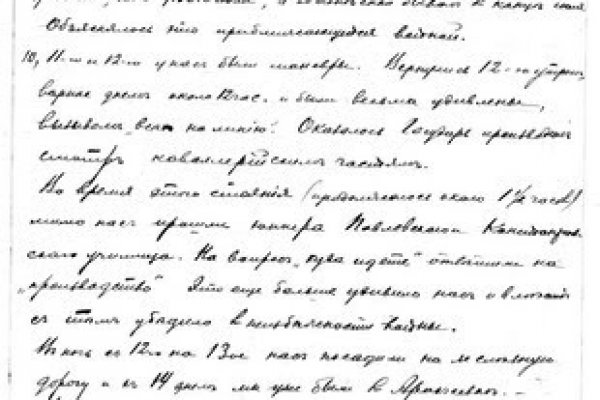 Объяснялось это приближающейся войной.
10, 11-го и 12-го у нас были маневры. Вернулись 12-го утром,
вернее днем около 12 час. и были весьма удивлены,
вызовом „всех на линию". Оказалось Государь производил
смотр кавалерийским частям.
Во время этого стояния (продолжалось около 1½ часов)
мимо нас прошли юнкера Павловского
училища. На вопрос „куда идете" ответили на
„производство" Это еще больше удивило нас и
с тем убедило в неизбежности войны.
В ночь с 12го на 13ое нас посадили на железную
дорогу и к 14 днем мы уже были в